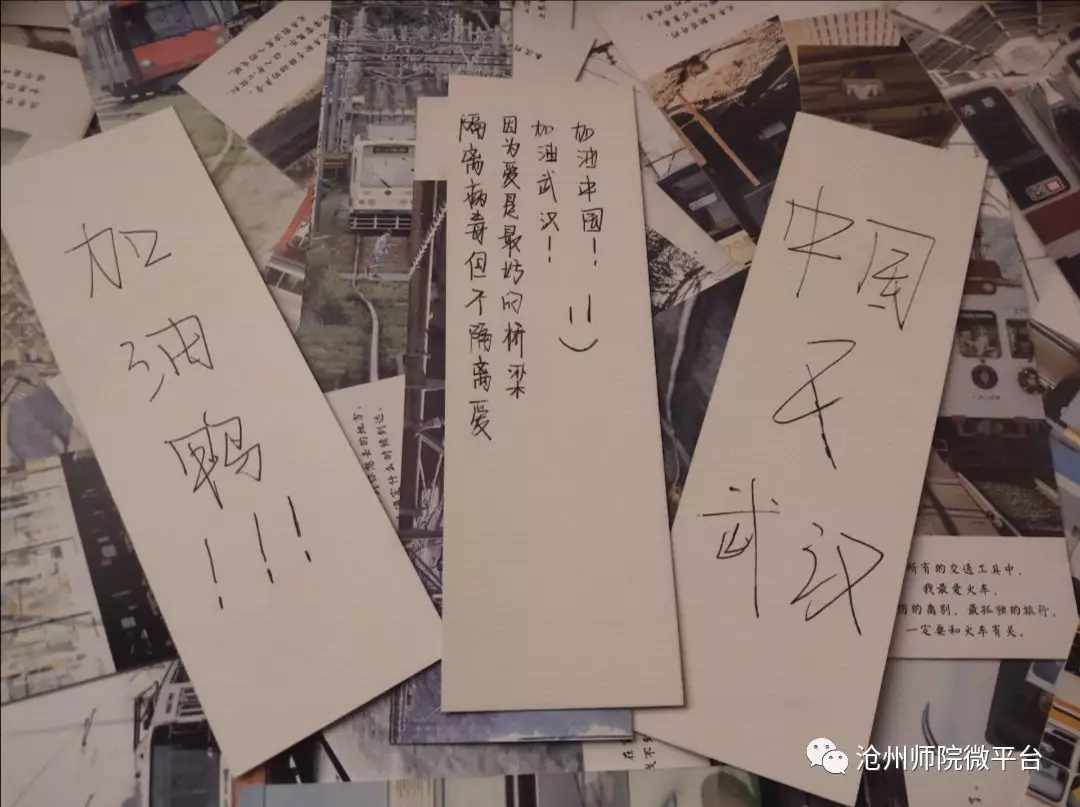 加
油
鸭
!!!
加油中国! :)
加油武汉!
因为爱是最好的桥梁
隔离病毒但不隔离爱
中国
武汉
想去的地方,
定什么时候到达。
所有的交通工具中,
我最爱火车。
伤的离别,最孤独的旅行,
一定要和火车有关。
沧州师院微平台